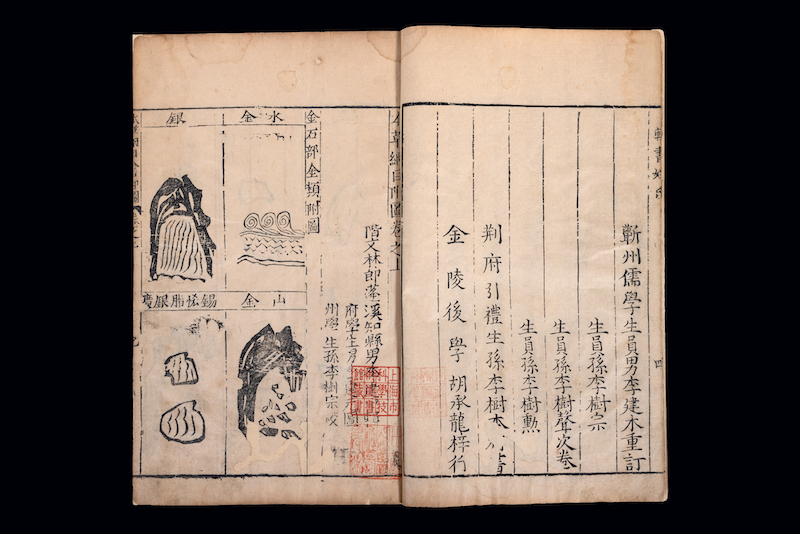 蘄州儒學生員男李建木重訂
生員孫李樹宗
生員孫李樹聲次卷
生員孫李樹勲
荆府引禮生孫李樹本 書
金陵後學胡承龍梓行
草綱目附圖卷之上
階文林郎蓬溪知縣男李建
府學生男李建元圖
州學生孫李樹宗校
金石部金類附圖
水金
山金
銀
錫恡脂銀廣